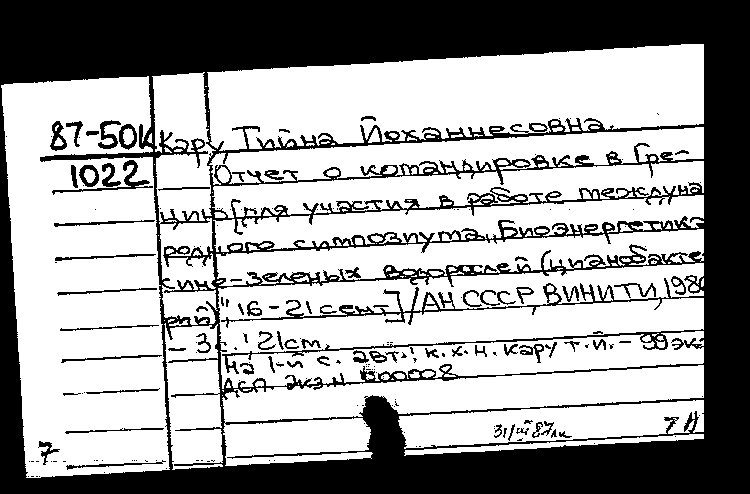 87-50К
1022
Кару, Тийна Йоханнесовна.
Отчет о командировке в Гре-
цию [для участия в работе междуна
родного симпозиума „Биоэнергетика
сине-зеленых водорослей (цианобакте
рий)", 16-21 сент.] / АН СССР, ВИНИТИ, 198
- 3 с.; 21 см.
На 1-й с. авт.: к.х.н. Кару Т.Й. - 99 экз
Деп. экз. N 600008
7